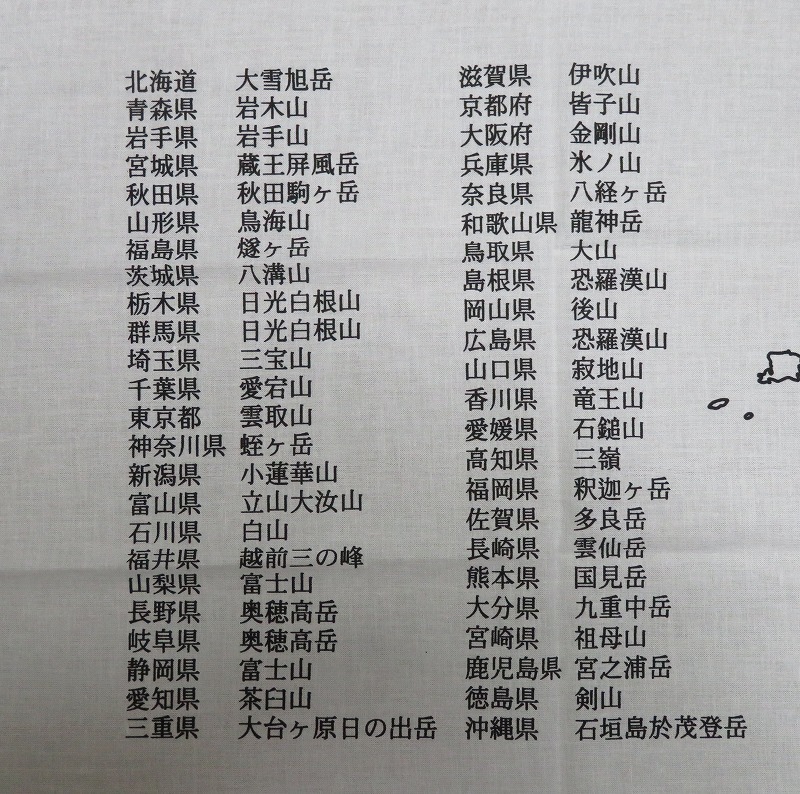 北海道 大雪旭岳
青森県 岩木山
岩手県 岩手山
宮城県 蔵王屏風岳
秋田県 秋田駒ヶ岳
山形県 鳥海山
福島県 燧ヶ岳
茨城県 八溝山
栃木県 日光白根山
群馬県 日光白根山
埼玉県 三宝山
千葉県 愛宕山
東京都 雲取山
神奈川県 蛭ヶ岳
新潟県 小蓮華山
富山県 立山大汝山
石川県 白山
福井県 越前三の峰
山梨県 富士山
長野県 奥穂高岳
岐阜県 奥穂高岳
静岡県 富士山
愛知県 茶臼山
三重県 大台ヶ原日の出岳
滋賀県 伊吹山
京都府 皆子山
大阪府 金剛山
兵庫県 氷ノ山
奈良県 八経ヶ岳
和歌山県 龍神岳
鳥取県 大山
島根県 恐羅漢山
岡山県 後山
広島県 恐羅漢山
山口県 寂地山
香川県 竜王山
愛媛県 石鎚山
高知県 三嶺
福岡県 釈迦ヶ岳
佐賀県 多良岳
長崎県 雲仙岳
熊本県 国見岳
大分県 九重中岳
宮崎県 祖母山
鹿児島県 宮之浦岳
徳島県 剣山
沖縄県 石垣島於茂登岳